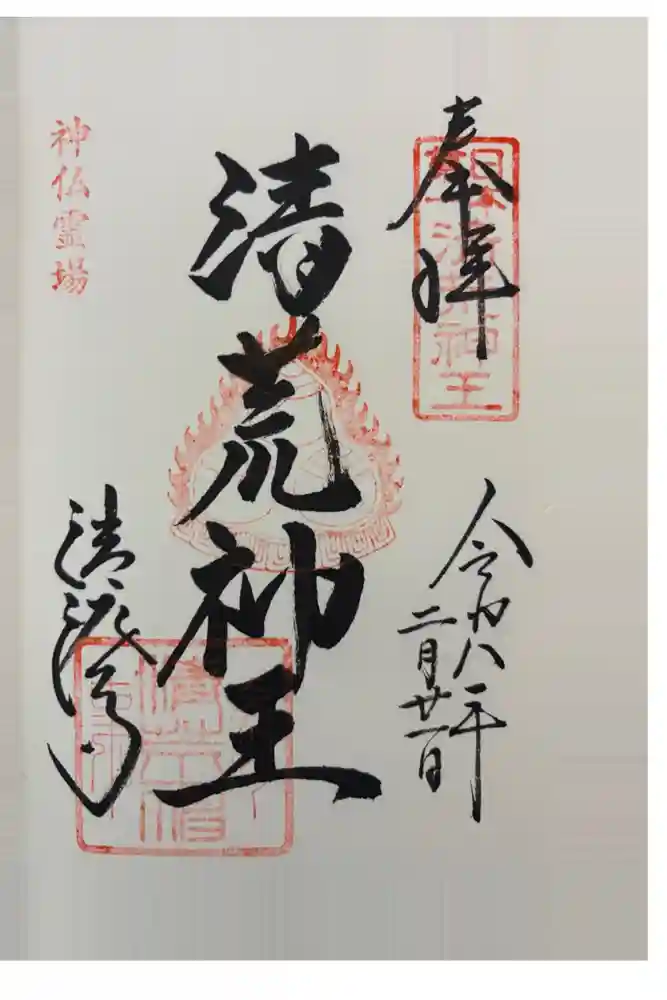 奉拝
清荒神王
令和八年
二月廿一日
清荒神王
神仏霊場
清澄寺